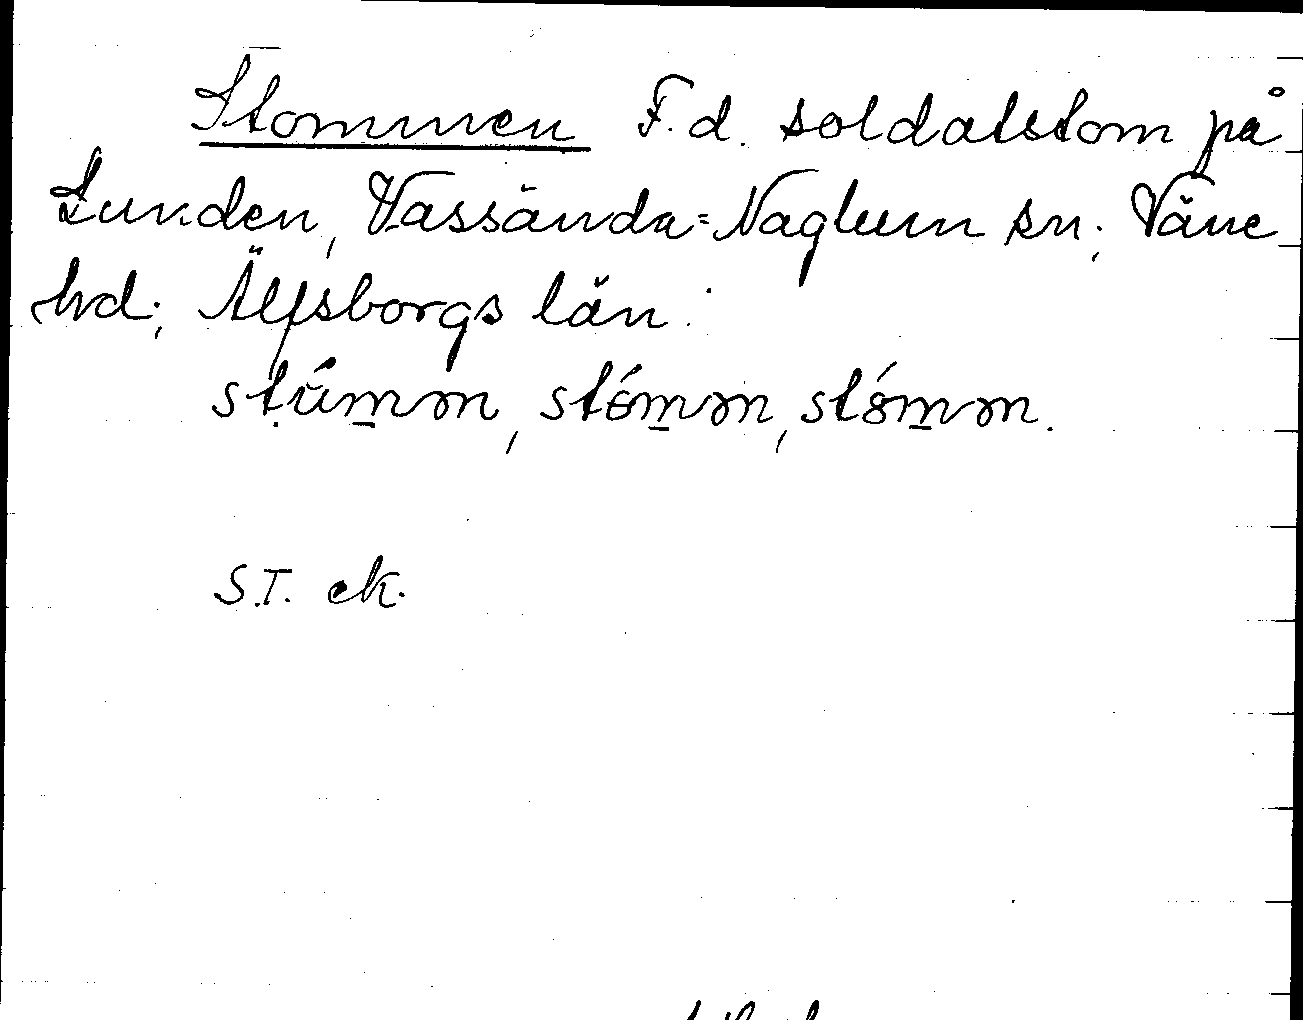 Stommen F.d. soldatstom på
Lunden, Vassända-Naglum sn; Väne
hd; Älfsborgs län.
stúm̲ən, stóm̲ən, stǿm̲ən.
S.T. ek.